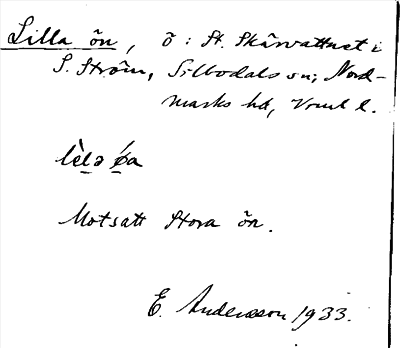 Lilla ön, ö: St. Skärvattnet i
S. Ström, Silbodals sn; Nord-
marks hd, Vrml l.
lèlə øa
Motsatt Stora ön.
E. Andersson 1933.